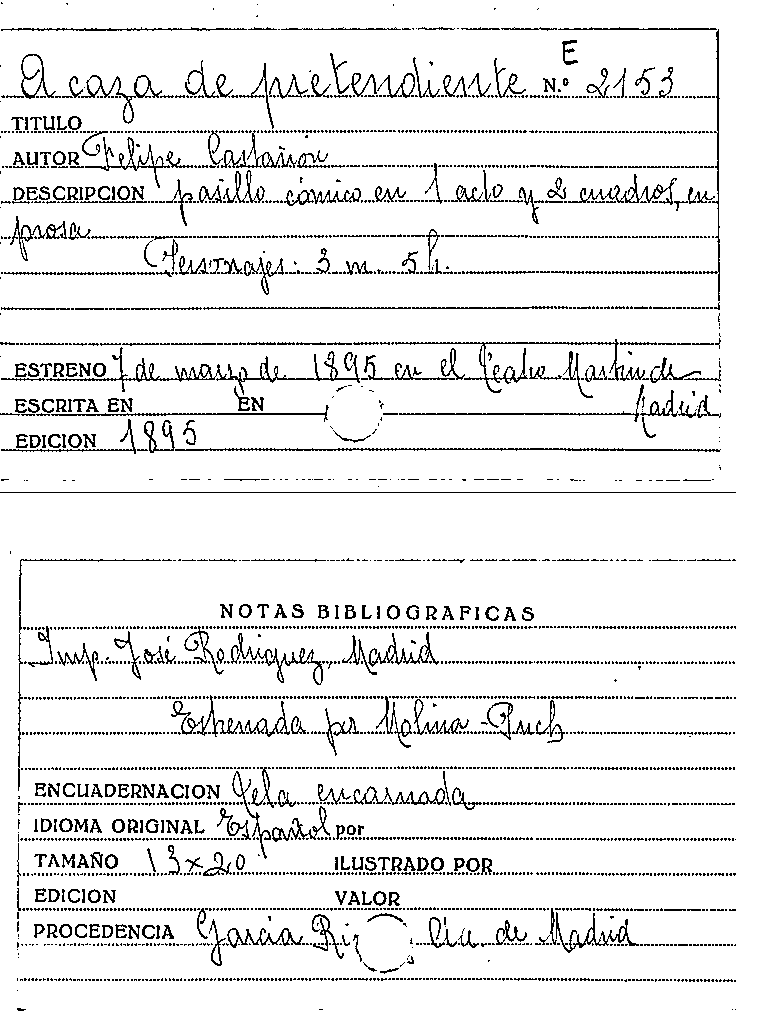 E
A caza de pretendiente N.º 2153
TITULO
AUTOR Felipe Castañón
DESCRIPCION pasillo cómico en 1 acto y 2 cuadros, en
prosa
Personajes: 3 m. 5 h.
ESTRENO 7 de marzo de 1895 en el Teatro Martin de
ESCRITA EN EN Madrid
EDICION 1895
NOTAS BIBLIOGRAFICAS
Imp. José Rodriguez, Madrid
Estrenada por Molina - Puch
ENCUADERNACION Tela encarnada
IDIOMA ORIGINAL Español por
TAMAÑO 13 x 20 ILUSTRADO POR
EDICION VALOR
PROCEDENCIA Garcia Cia. de Madrid